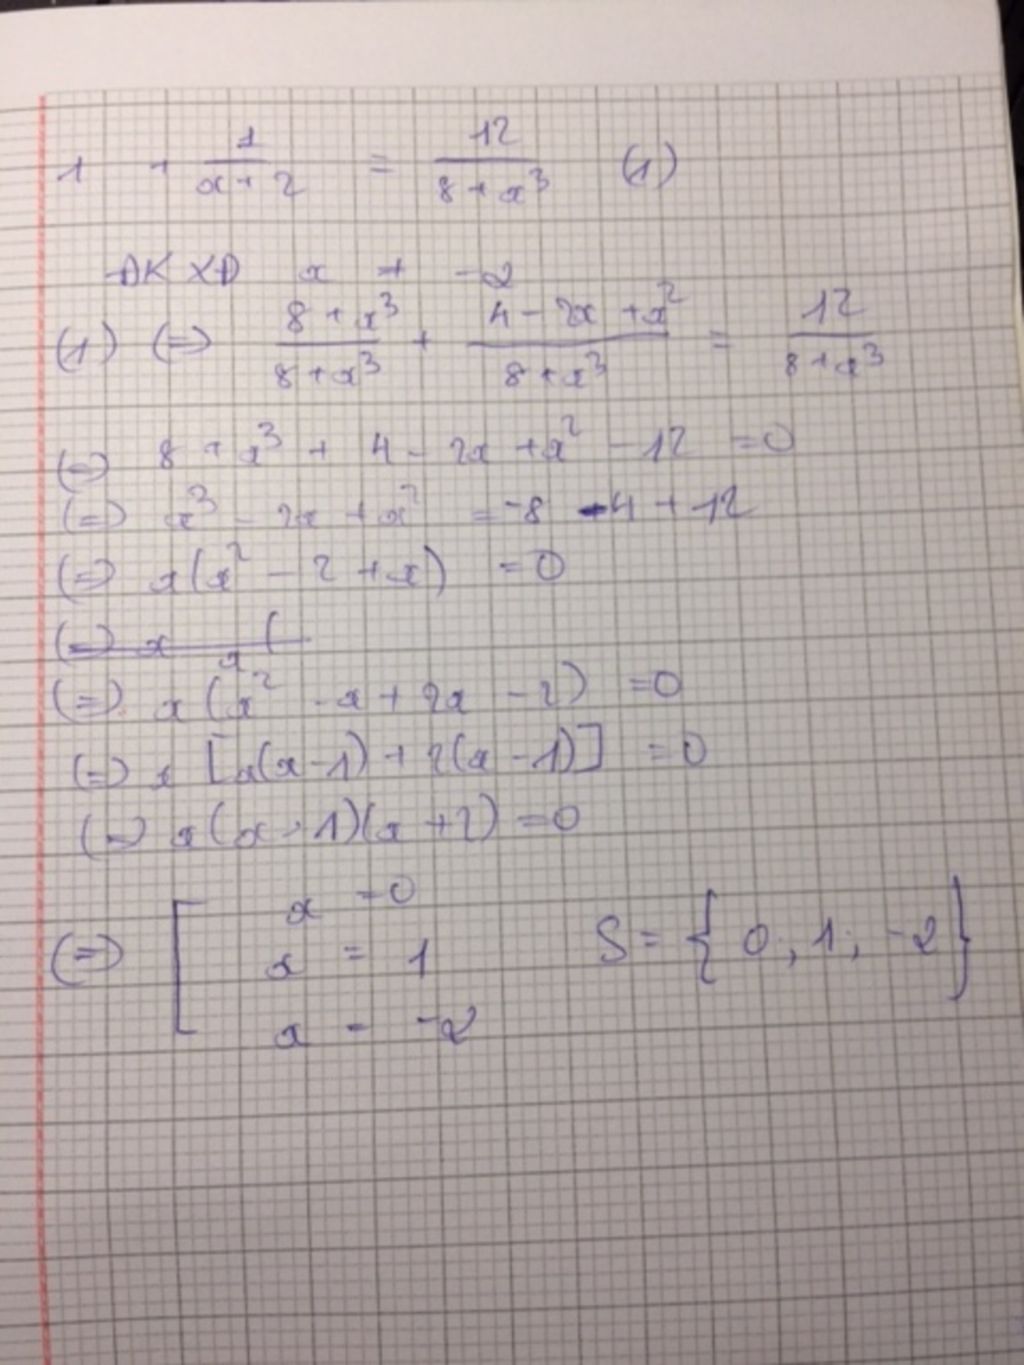 1 + 1/(x+2) = 12/(8+x³) (1)
ĐKXĐ x ≠ -2
(1) (=) (8+x³)/(8+x³) + (4-2x+x²)/(8+x³) = 12/(8+x³)
(=) 8 + x³ + 4 - 2x + x² - 12 = 0
(=) x³ - 2x + x² = -8 - 4 + 12
(=) x(x² - 2 + x) = 0
(=) x (
(=) x(x² - x + 2x - 2) = 0
(=) x [x(x-1) + 2(x-1)] = 0
(=) x(x-1)(x+2) = 0
(=) [ x = 0
x = 1 S = { 0; 1; -2 }
x = -2